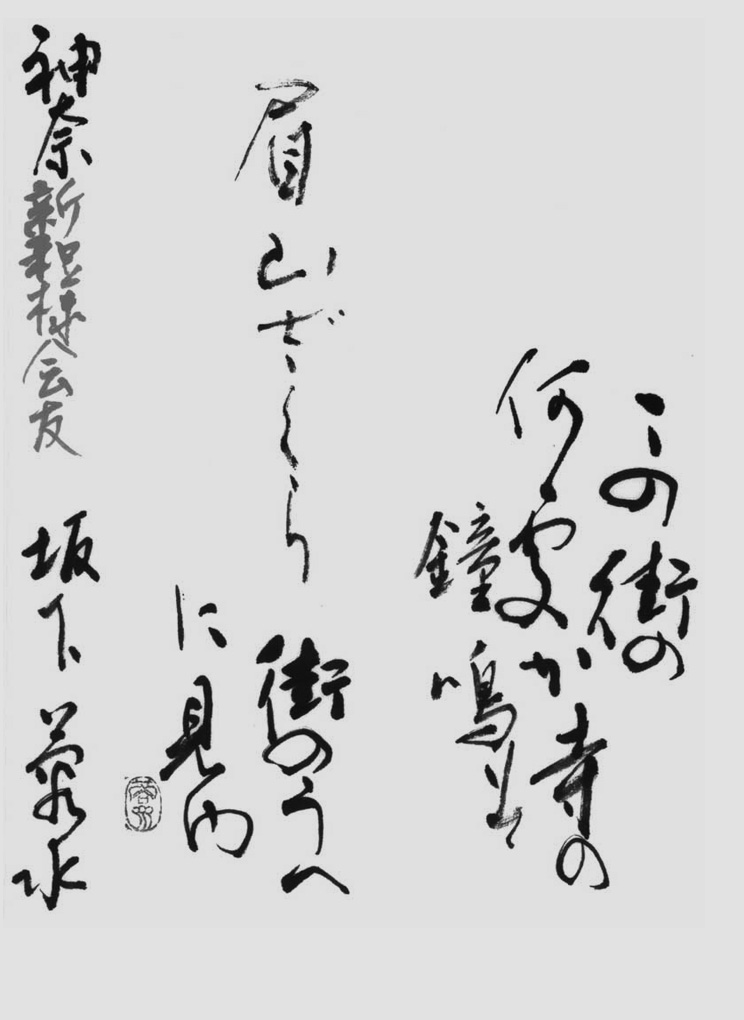 この街の
何處か寺の
鐘鳴
眉山ざくら
街のうへ
に見ゆ
神奈 会友 坂下 水